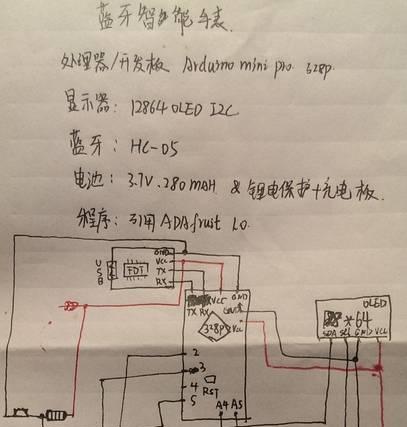 蓝牙智能手表
处理器/开发板 Arduino mini pro 328p
显示器: 12864 OLED I2C
蓝牙: HC-05
电池: 3.7V.280mAH & 锂电保护+充电板.
程序: 引用ADAfruit
USB
FDT
GND
VCC
TX
RX
VCC GND
TX RX
328P
VCC
2
3
4
5
RST
A4 A5
OLED
*64
SDA SCL GND VCC